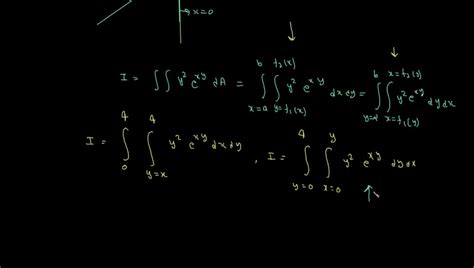 x=0
I = ∬ y² e^{xy} dA = ∫_{x=a}^{b} ∫_{y=f₁(x)}^{f₂(x)} y² e^{xy} dx dy = ∫_{y=a}^{b} ∫_{x=f₁(y)}^{x=f₂(y)} y² e^{xy} dy dx
I = ∫_{0}^{4} ∫_{y=x}^{4} y² e^{xy} dx dy , I = ∫_{y=0}^{4} ∫_{x=0}^{y} y² e^{xy} dy dx